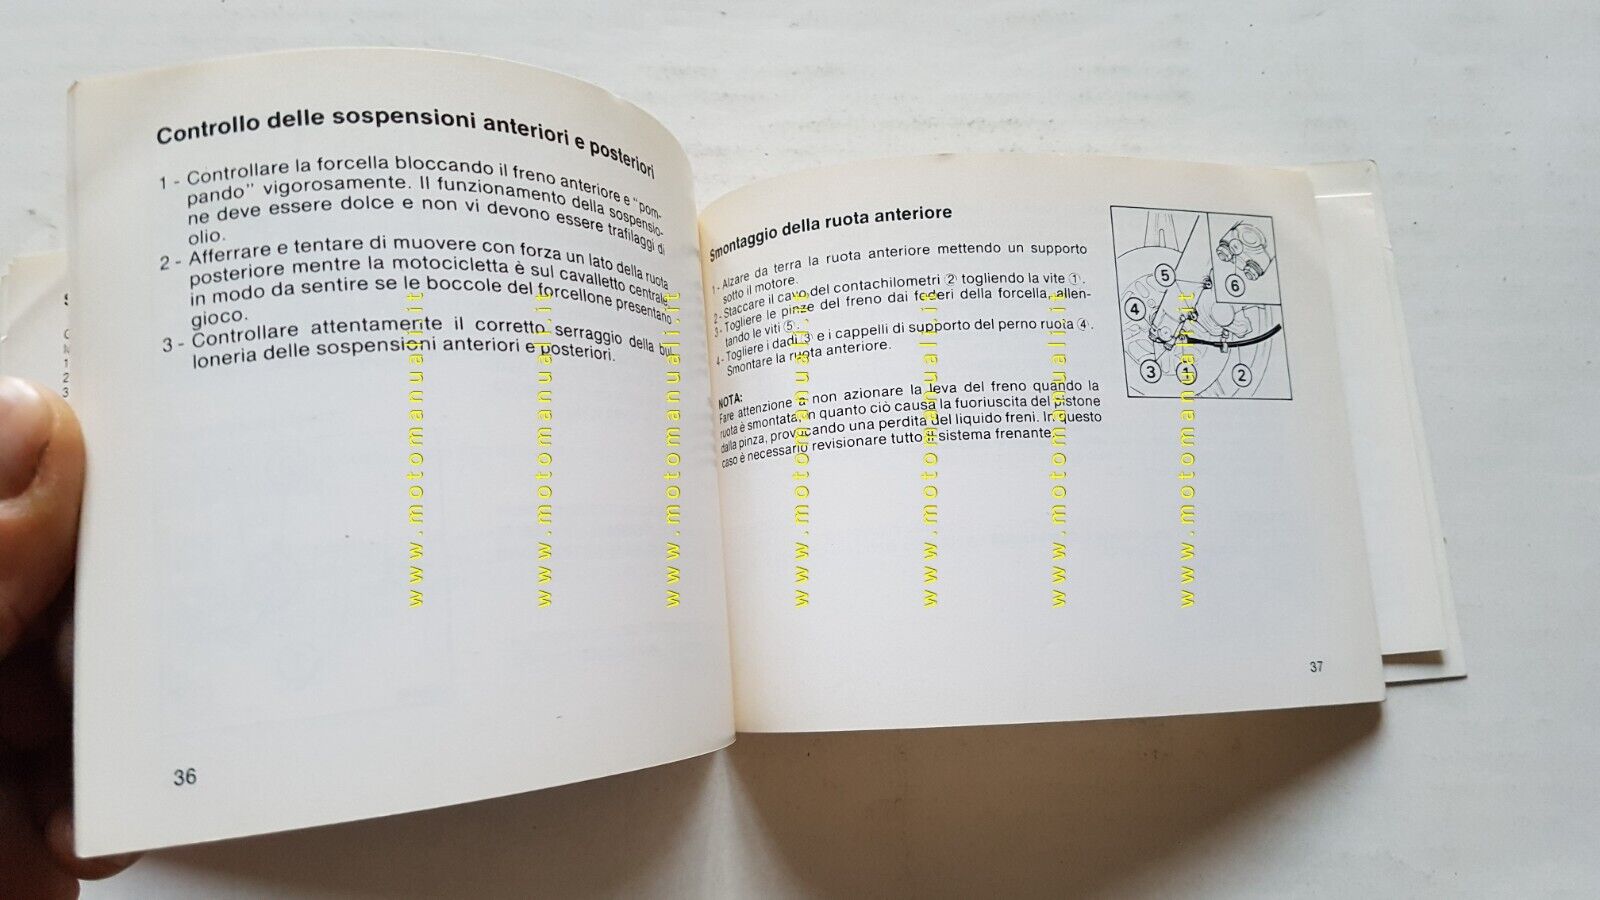 Controllo delle sospensioni anteriori e posteriori
1 - Controllare la forcella bloccando il freno anteriore e "pom-
pando" vigorosamente. Il funzionamento della sospensio-
ne deve essere dolce e non vi devono essere trafilaggi di
olio.
2 - Afferrare e tentare di muovere con forza un lato della ruota
posteriore mentre la motocicletta è sul cavalletto centrale,
in modo da sentire se le boccole del forcellone presentano
gioco.
3 - Controllare attentamente il corretto serraggio della bul-
loneria delle sospensioni anteriori e posteriori.
36
Smontaggio della ruota anteriore
1 - Alzare da terra la ruota anteriore mettendo un supporto
sotto il motore.
2 - Staccare il cavo del contachilometri ② togliendo la vite ①.
3 - Togliere le pinze del freno dai foderi della forcella, allen-
tando le viti ⑤.
4 - Togliere i dadi ③ e i cappelli di supporto del perno ruota ④.
Smontare la ruota anteriore.
NOTA:
Fare attenzione a non azionare la leva del freno quando la
ruota è smontata, in quanto ciò causa la fuoriuscita del pistone
dalla pinza, provocando una perdita del liquido freni. In questo
caso è necessario revisionare tutto il sistema frenante.
5
6
4
3
1
2
37
www.motomanuali.it
www.motomanuali.it
www.motomanuali.it
www.motomanuali.it
www.motomanuali.it
www.motomanuali.it
www.motomanuali.it